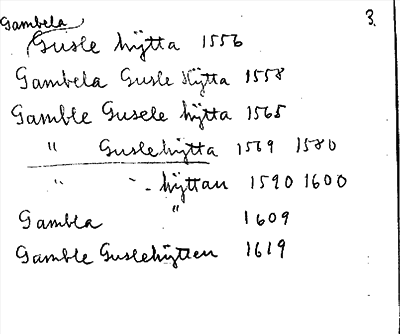 Gambela 3.
Gusle hÿtta 1556
Gambela Gusle Hÿtta 1558
Gamble Gusele hÿtta 1565
" Guslehÿtta 1569 1580
" " hÿttan 1590 1600
Gambla " 1609
Gamble Guslehÿtten 1619